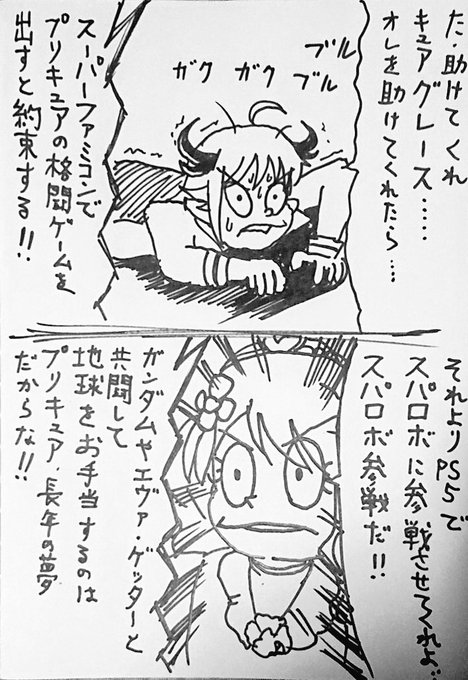 た・助けてくれ
キュアグレース……
オレを助けてくれたら…
ブル
ブル
ガク
ガク
スーパーファミコンで
プリキュアの格闘ゲームを
出すと約束する!!
それよりPS5で
スパロボに参戦させてくれよ…
スパロボ参戦だ!!
ガンダムやエヴァ・ゲッターと
共闘して
地球をお手当するのは
プリキュア、長年の夢
だからな!!